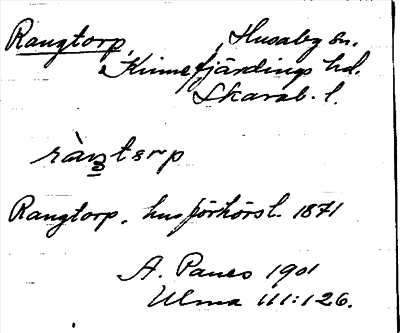 Rangtorp, Husaby sn.
Kinnefjärdings hd.
Skarab. l.
Rangtorp, husförhörsl. 1871
A. Panes 1901
Ulma 111:126.